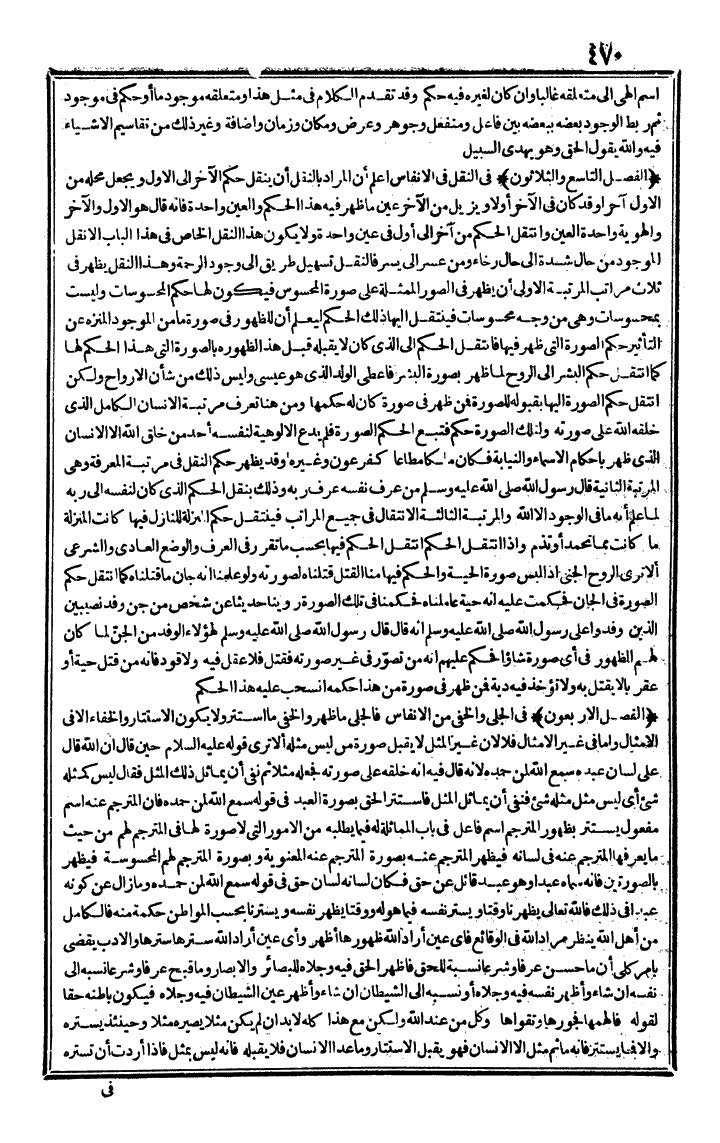 ٤٧٠
اسم الهى الى متعلقه غالبا وان كان لغيره فيه حكم وقد تقدم الكلام فى مثل هذا ومتعلقه موجود ما أو حكم فى موجود
ثم ربط الوجود بعضه ببعضه بين فاعل ومنفعل وجوهر وعرض ومكان وزمان واضافة وغير ذلك من تقاسيم الاشياء
فيه والله يقول الحق وهو يهدى السبيل
﴿الفصل التاسع والثلاثون﴾ فى النقل فى الانفاس اعلم أن المراد بالنقل أن ينقل حكم الآخر الى الاول ويجعل محله من
الاول آخرا وقد كان فى الآخر أولا ويزيل من الآخر عين ما ظهر فيه هذا الحكم والعين واحدة فانه قال هو الاول والآخر
والهوية واحدة العين وانتقل الحكم من آخر الى أول فى عين واحدة ولا يكون هذا النقل الخاص فى هذا الباب الا نقل
الموجود من حال شدة الى حال رخاء ومن عسر الى يسر فالنقل تسهيل طريق الى وجود الرحمة وهذا النقل يظهر فى
ثلاث مراتب المرتبة الاولى أن يظهر فى الصور الممثلة على صورة المحسوس فيكون لها حكم المحسوسات وليست
بمحسوسات وهى من وجه محسوسات فينتقل اليها ذلك الحكم ليعلم أن للظهور فى صورة ما من الموجود المنزه عن
التأثير حكم الصورة التى ظهر فيها فانتقل الحكم الى الذى كان لا يقبله قبل هذا الظهور بالصورة التى هذا الحكم لها
كما انتقل حكم البشر الى الروح لما ظهر بصورة البشر فاعطى الولد الذى هو عيسى وليس ذلك من شأن الارواح ولكن
انتقل حكم الصورة اليها بقبوله للصورة فمن ظهر فى صورة كان له حكمها ومن هنا تعرف مرتبة الانسان الكامل الذى
خلقه الله على صورته ولتلك الصورة حكم فتبع الحكم الصورة فلم يدع الالوهية لنفسه أحد من خلق الله الا الانسان
الذى ظهر باحكام الاسماء والنيابة فكان ملكا مطاعا كفرعون وغيره وقد يظهر حكم النقل فى مرتبة المعرفة وهى
المرتبة الثانية قال رسول الله صلى الله عليه وسلم من عرف نفسه عرف ربه وذلك بنقل الحكم الذى كان لنفسه الى ربه
لما علم أنه ما فى الوجود الا الله والمرتبة الثالثة الانتقال فى جميع المراتب فينتقل حكم المنزلة للنازل فيها كانت المنزلة
ما كانت بما تحمد أو تذم واذا انتقل الحكم انتقل الحكم فيها بحسب ما تقرر فى العرف والوضع العادى والشرعى
ألا ترى الروح الجنى اذا لبس صورة الحية والحكم فيها منا القتل قتلناه لصورته ولو علمنا انه جان ما قتلناه كما انتقل حكم
الصورة فى الجان فحكمت عليه انه حية عاملناه بحكمنا فى تلك الصورة روينا حديثا عن شخص من جن وفد نصيبين
الذين وفدوا على رسول الله صلى الله عليه وسلم انه قال قال رسول الله صلى الله عليه وسلم لهؤلاء الوفد من الجن لما كان
لهم الظهور فى أى صورة شاؤا فحكم عليهم انه من تصوّر فى غير صورته فقتل فلا عقل فيه ولا قود فانه من قتل حية أو
عقربا لا يقتل به ولا تؤخذ فيه دية فمن ظهر فى صورة من هذا حكمه انسحب عليه هذا الحكم
﴿الفصل الاربعون﴾ فى الجلى والخفى من الانفاس فالجلى ما ظهر والخفى ما استتر ولا يكون الاستتار والخفاء الا فى
الامثال واما فى غير الامثال فلا لان غير المثل لا يقبل صورة من ليس مثله ألا ترى قوله عليه السلام حين قال ان الله قال
على لسان عبده سمع الله لمن حمده لانه قال فيه انه خلقه على صورته فجعله مثلا ثم نفى أن يماثل ذلك المثل فقال ليس كمثله
شئ أى ليس مثل مثله شئ فنفى أن يماثل المثل فاستتر الحق بصورة العبد فى قوله سمع الله لمن حمده فان المترجم عنه اسم
مفعول يستتر بظهور المترجم اسم فاعل فى باب المماثلة له فيما يطلبه من الامور التى لا صورة لها فى المترجم لهم من حيث
ما يعرفها المترجم عنه فى لسانه فيظهر المترجم عنه بصورة المترجم عنه المعنوية وبصورة المترجم لهم المحسوسة فيظهر
بالصورتين فانه سماه عبدا وهو عبد قائل عن حق فكان لسانه لسان حق فى قوله سمع الله لمن حمده وما زال عن كونه
عبدا فى ذلك فالله تعالى يظهرنا وقتا ويستر نفسه فيما هو له ووقتا يظهر نفسه ويسترنا بحسب المواطن حكمة منه فالكامل
من أهل الله ينظر مراد الله فى الوقائع فاى عين أراد الله ظهورها أظهر وأى عين أراد الله سترها سترها والادب يقضى
بامر كلى أن ما حسن عرفا وشرعا نسبة للحق فاظهر الحق فيه وجلاه للبصائر والابصار وما قبح عرفا وشرعا نسبه الى
نفسه ان شاء وأظهر نفسه فيه وجلاه أو نسبه الى الشيطان ان شاء وأظهر عين الشيطان فيه وجلاه فيكون باطنه حقا
لقوله فالهمها فجورها وتقواها وكل من عند الله ولكن مع هذا كله لابد ان لم يكن مثلا يصيره مثلا وحينئذ يستره
والا فما يستتر فانه ما ثم مثل الا الانسان فهو يقبل الاستتار وما عدا الانسان فلا يقبله فانه ليس بمثل فاذا أردت أن تستره
فى